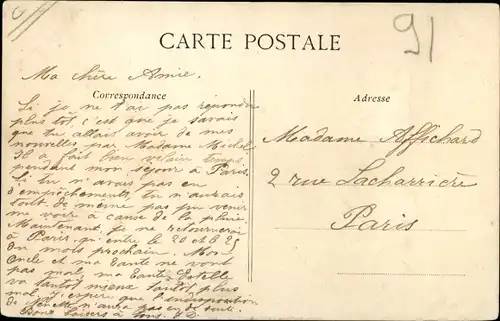 91
CARTE POSTALE
Ma chère Amie,
Correspondance
Si je ne t'ai pas répondu
plus tot, c'est que je savais
que tu allais avoir de mes
nouvelles par Madame Michel
Il a fait bien vilain temps
pendant mon séjour à Paris.
Si tu n'avais pas eu
d'empêchements, tu n'aurais
tout de même pas pu venir
me voir à cause de la pluie.
Maintenant je ne retournerai
à Paris qu'entre le 20 et le 25
du mois prochain. Mon
Oncle et ma Tante ne vont
pas mal, ma Tante Estelle
va tantôt mieux tantôt plus
mal. J'espère que l'indisposition
de n'aura pas eu de suite.
Bons baisers à tous.
Adresse
Madame Affichard
2 rue Lacharrière
Paris